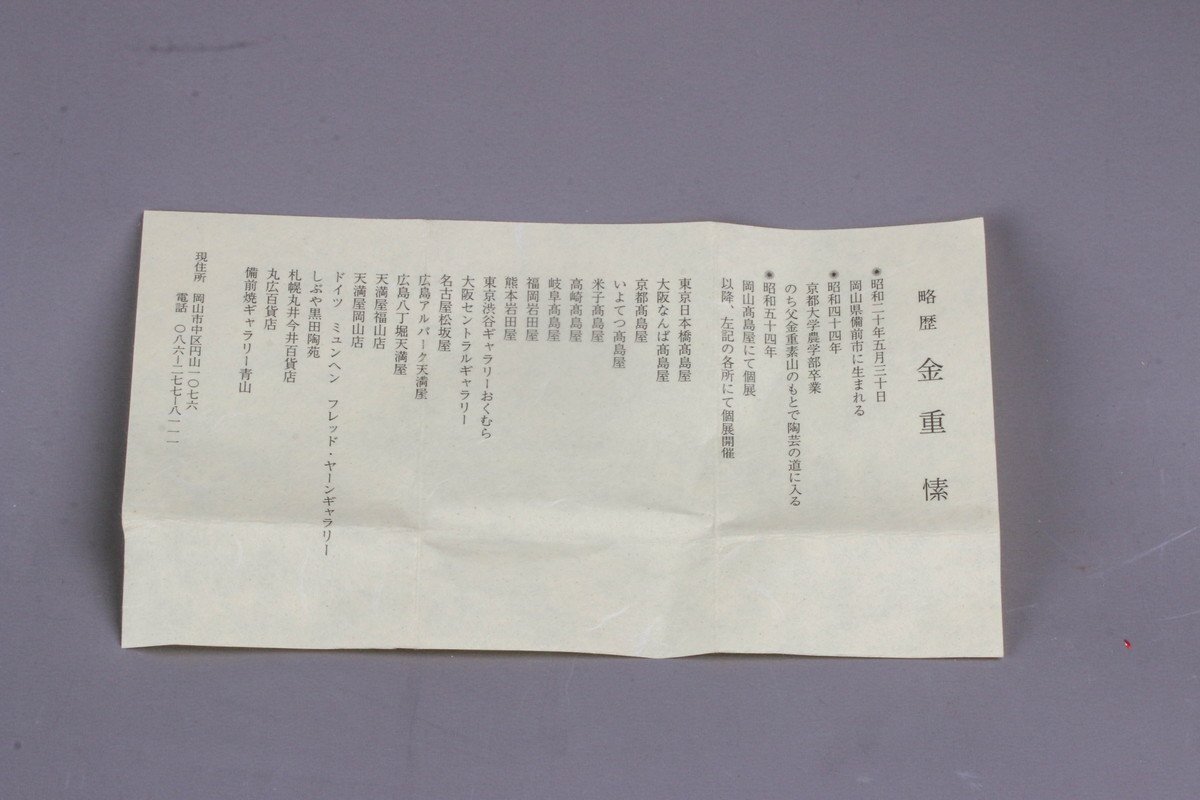 略歴　金重愫
◉昭和二十年五月三十日
岡山県備前市に生まれる
◉昭和四十四年
京都大学農学部卒業
のち父金重素山のもとで陶芸の道に入る
◉昭和五十四年
岡山髙島屋にて個展
以降、左記の各所にて個展開催
東京日本橋髙島屋
大阪なんば髙島屋
京都髙島屋
いよてつ髙島屋
米子髙島屋
高崎髙島屋
岐阜髙島屋
福岡岩田屋
熊本岩田屋
東京渋谷ギャラリーおくむら
大阪セントラルギャラリー
名古屋松坂屋
広島アルパーク天満屋
広島八丁堀天満屋
天満屋福山店
天満屋岡山店
ドイツ　ミュンヘン　フレッド・ヤーンギャラリー
しぶや黒田陶苑
札幌丸井今井百貨店
丸広百貨店
備前焼ギャラリー青山
現住所　岡山市中区円山一〇七六
電話　〇八六ー二七七ー八一一一